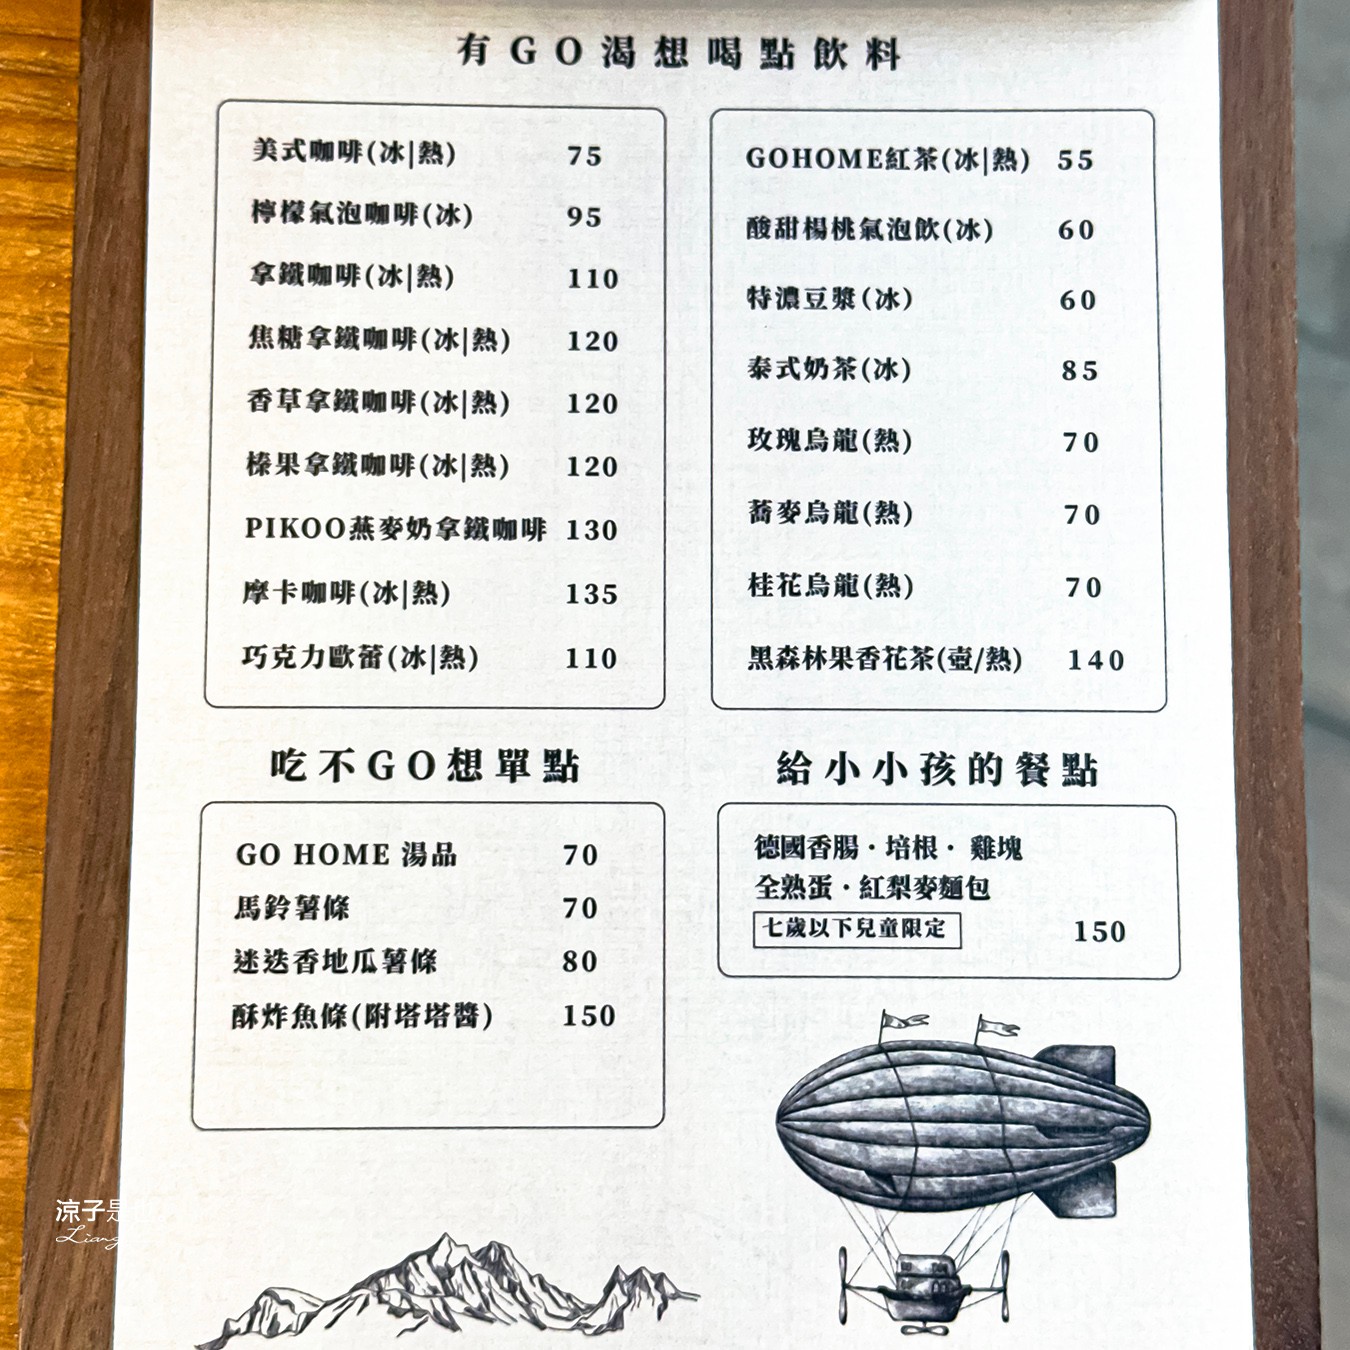 有GO渴想喝點飲料
美式咖啡(冰|熱) 75
檸檬氣泡咖啡(冰) 95
拿鐵咖啡(冰|熱) 110
焦糖拿鐵咖啡(冰|熱) 120
香草拿鐵咖啡(冰|熱) 120
榛果拿鐵咖啡(冰|熱) 120
PIKOO燕麥奶拿鐵咖啡 130
摩卡咖啡(冰|熱) 135
巧克力歐蕾(冰|熱) 110
GOHOME紅茶(冰|熱) 55
酸甜楊桃氣泡飲(冰) 60
特濃豆漿(冰) 60
泰式奶茶(冰) 85
玫瑰烏龍(熱) 70
蕎麥烏龍(熱) 70
桂花烏龍(熱) 70
黑森林果香花茶(壺/熱) 140
吃不GO想單點
GO HOME 湯品 70
馬鈴薯條 70
迷迭香地瓜薯條 80
酥炸魚條(附塔塔醬) 150
給小小孩的餐點
德國香腸·培根·雞塊
全熟蛋·紅梨麥麵包
七歲以下兒童限定 150
涼子是
Liang